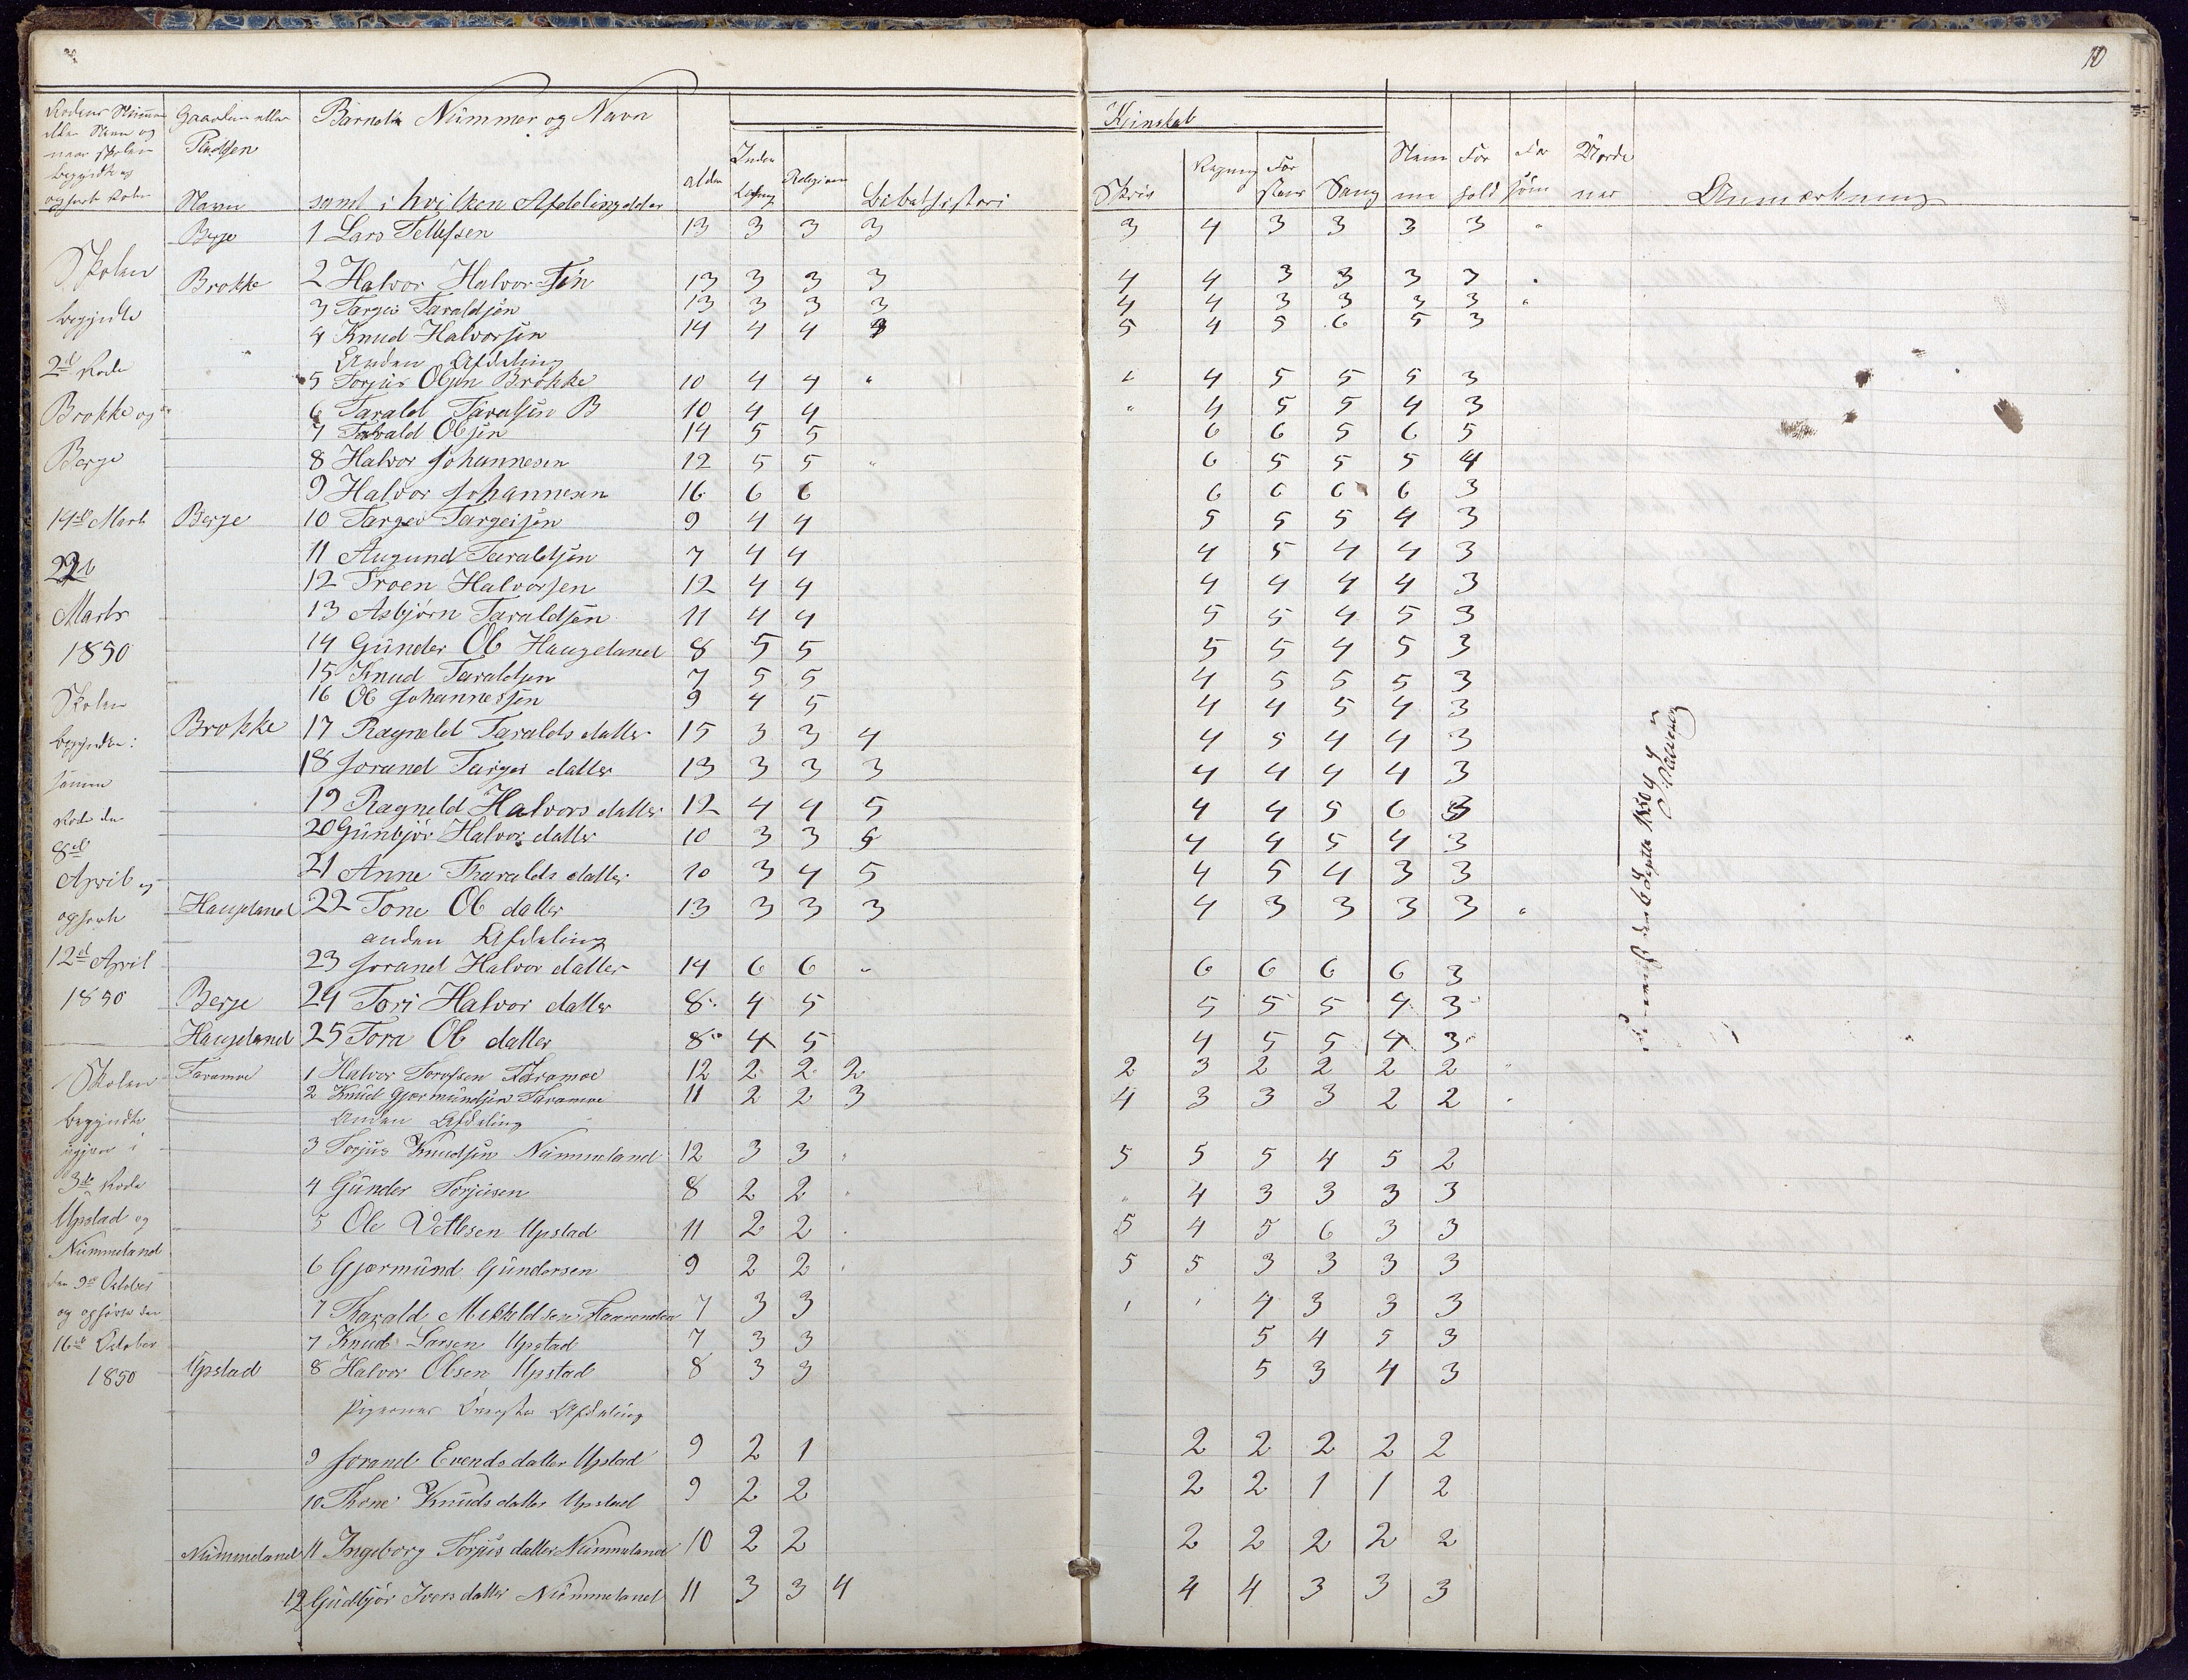 10
Børnenes Nummer og Navn
samt i hvilken Afdeling
Navn
Alder
Religion
Bibelhistori
Kundskab
Skriv
Regning
Sang
Anmærkning
Berge 1 Lars Tellefsen 13 3 3 3 3 4 3 3 3 3 "
Skolen
Brokke 2 Halvor Halvorsøn 13 3 3 3 4 4 3 3 3 3
begyndte 3 Targei Taraldsøn 13 3 3 3 4 4 3 3 3 3 "
4 Knud Halvorsøn 14 4 4 5 4 5 6 5 3
Anden Afdeling
2d Rode
5 Torjus Olsøn Brokke 10 4 4 " " 4 5 5 5 3
Brokke og 6 Tarald Taraldsøn B 10 4 4 " 4 5 5 4 3
7 Tarald Olsøn 14 5 5 6 6 5 6 5
Berge 8 Halvor Johannesen 12 5 5 " 6 5 5 5 4
9 Halvor Johannesen 16 6 6 6 6 6 6 3
14de Marts Berge 10 Targei Targeisøn 9 4 4 5 5 5 4 3
11 Augund Taraldsøn 7 4 4 4 5 4 4 3
12 Troen Halvorsen 12 4 4 4 4 4 4 3
Marts 13 Asbjørn Taraldsøn 11 4 4 5 5 4 5 3
1850 14 Gunder Ol Haugeland 8 5 5 5 5 4 5 3
15 Knud Taraldsøn 7 5 5 4 5 5 5 3
Skolen 16 Ol Johannessøn 9 4 5 4 4 5 4 3
Brokke 17 Ragneld Taralds datter 15 3 3 4 4 5 4 4 3
18 Jorand Targei datter 13 3 3 3 4 4 4 4 3
19 Ragneld Halvors datter 12 4 4 5 4 4 5 6 3
Rode den 20 Gunbjør Halvor datter 10 3 3 5 4 4 5 4 3
8de
April og 21 Anne Tharalds datter 10 3 4 5 4 5 4 3 3
ophørte Haugeland 22 Tone Ol datter 13 3 3 3 4 3 3 3 3 "
anden Afdeling
12d April 23 Jorand Halvor datter 14 6 6 " 6 6 6 6 3
1850 Berge 24 Tori Halvor datter 8 4 5 5 5 5 4 3
Haugeland 25 Tora Ol datter 8 4 5 4 5 5 4 3
Skolen Faramoe 1 Halvor Torufsen Faramoe 12 2 2 2 2 3 2 2 2 2 "
2 Knud Gjermundsøn Faramoe 11 2 2 3 4 3 3 3 2 2
begyndte Anden Afdeling
igjen i 3 Torjus Knudsøn Nummeland 12 3 3 5 5 5 4 5 2
3de Rode 4 Gunder Torjusen 8 2 2 " 4 3 3 3 3
Upstad og 5 Ole Vetlesen Upstad 11 2 2 5 4 5 6 3 3
Nummeland
den 9de October 6 Gjermund Gundersen 9 2 2 5 5 3 3 3 3
og ophørte den 7 Tharald Mekkeldsen 7 3 3 4 3 3 3
16de October 7 Knud Larsen Upstad 7 3 3 5 4 5 3
1850 Upstad 8 Halvor Olsen Upstad 8 3 3 5 3 4 3
Pigernes Øverste Afdeling
9 Jorand Evends datter Upstad 9 2 1 2 2 2 2 2
10 Thone Knuds datter Upstad 9 2 2 2 2 1 1 2
Nummeland 11 Ingeborg Torjus datter Nummeland 10 2 2 2 2 2 2 2
12 Gudbjør Ivers datter Nummeland 11 3 3 4 4 4 3 3 3